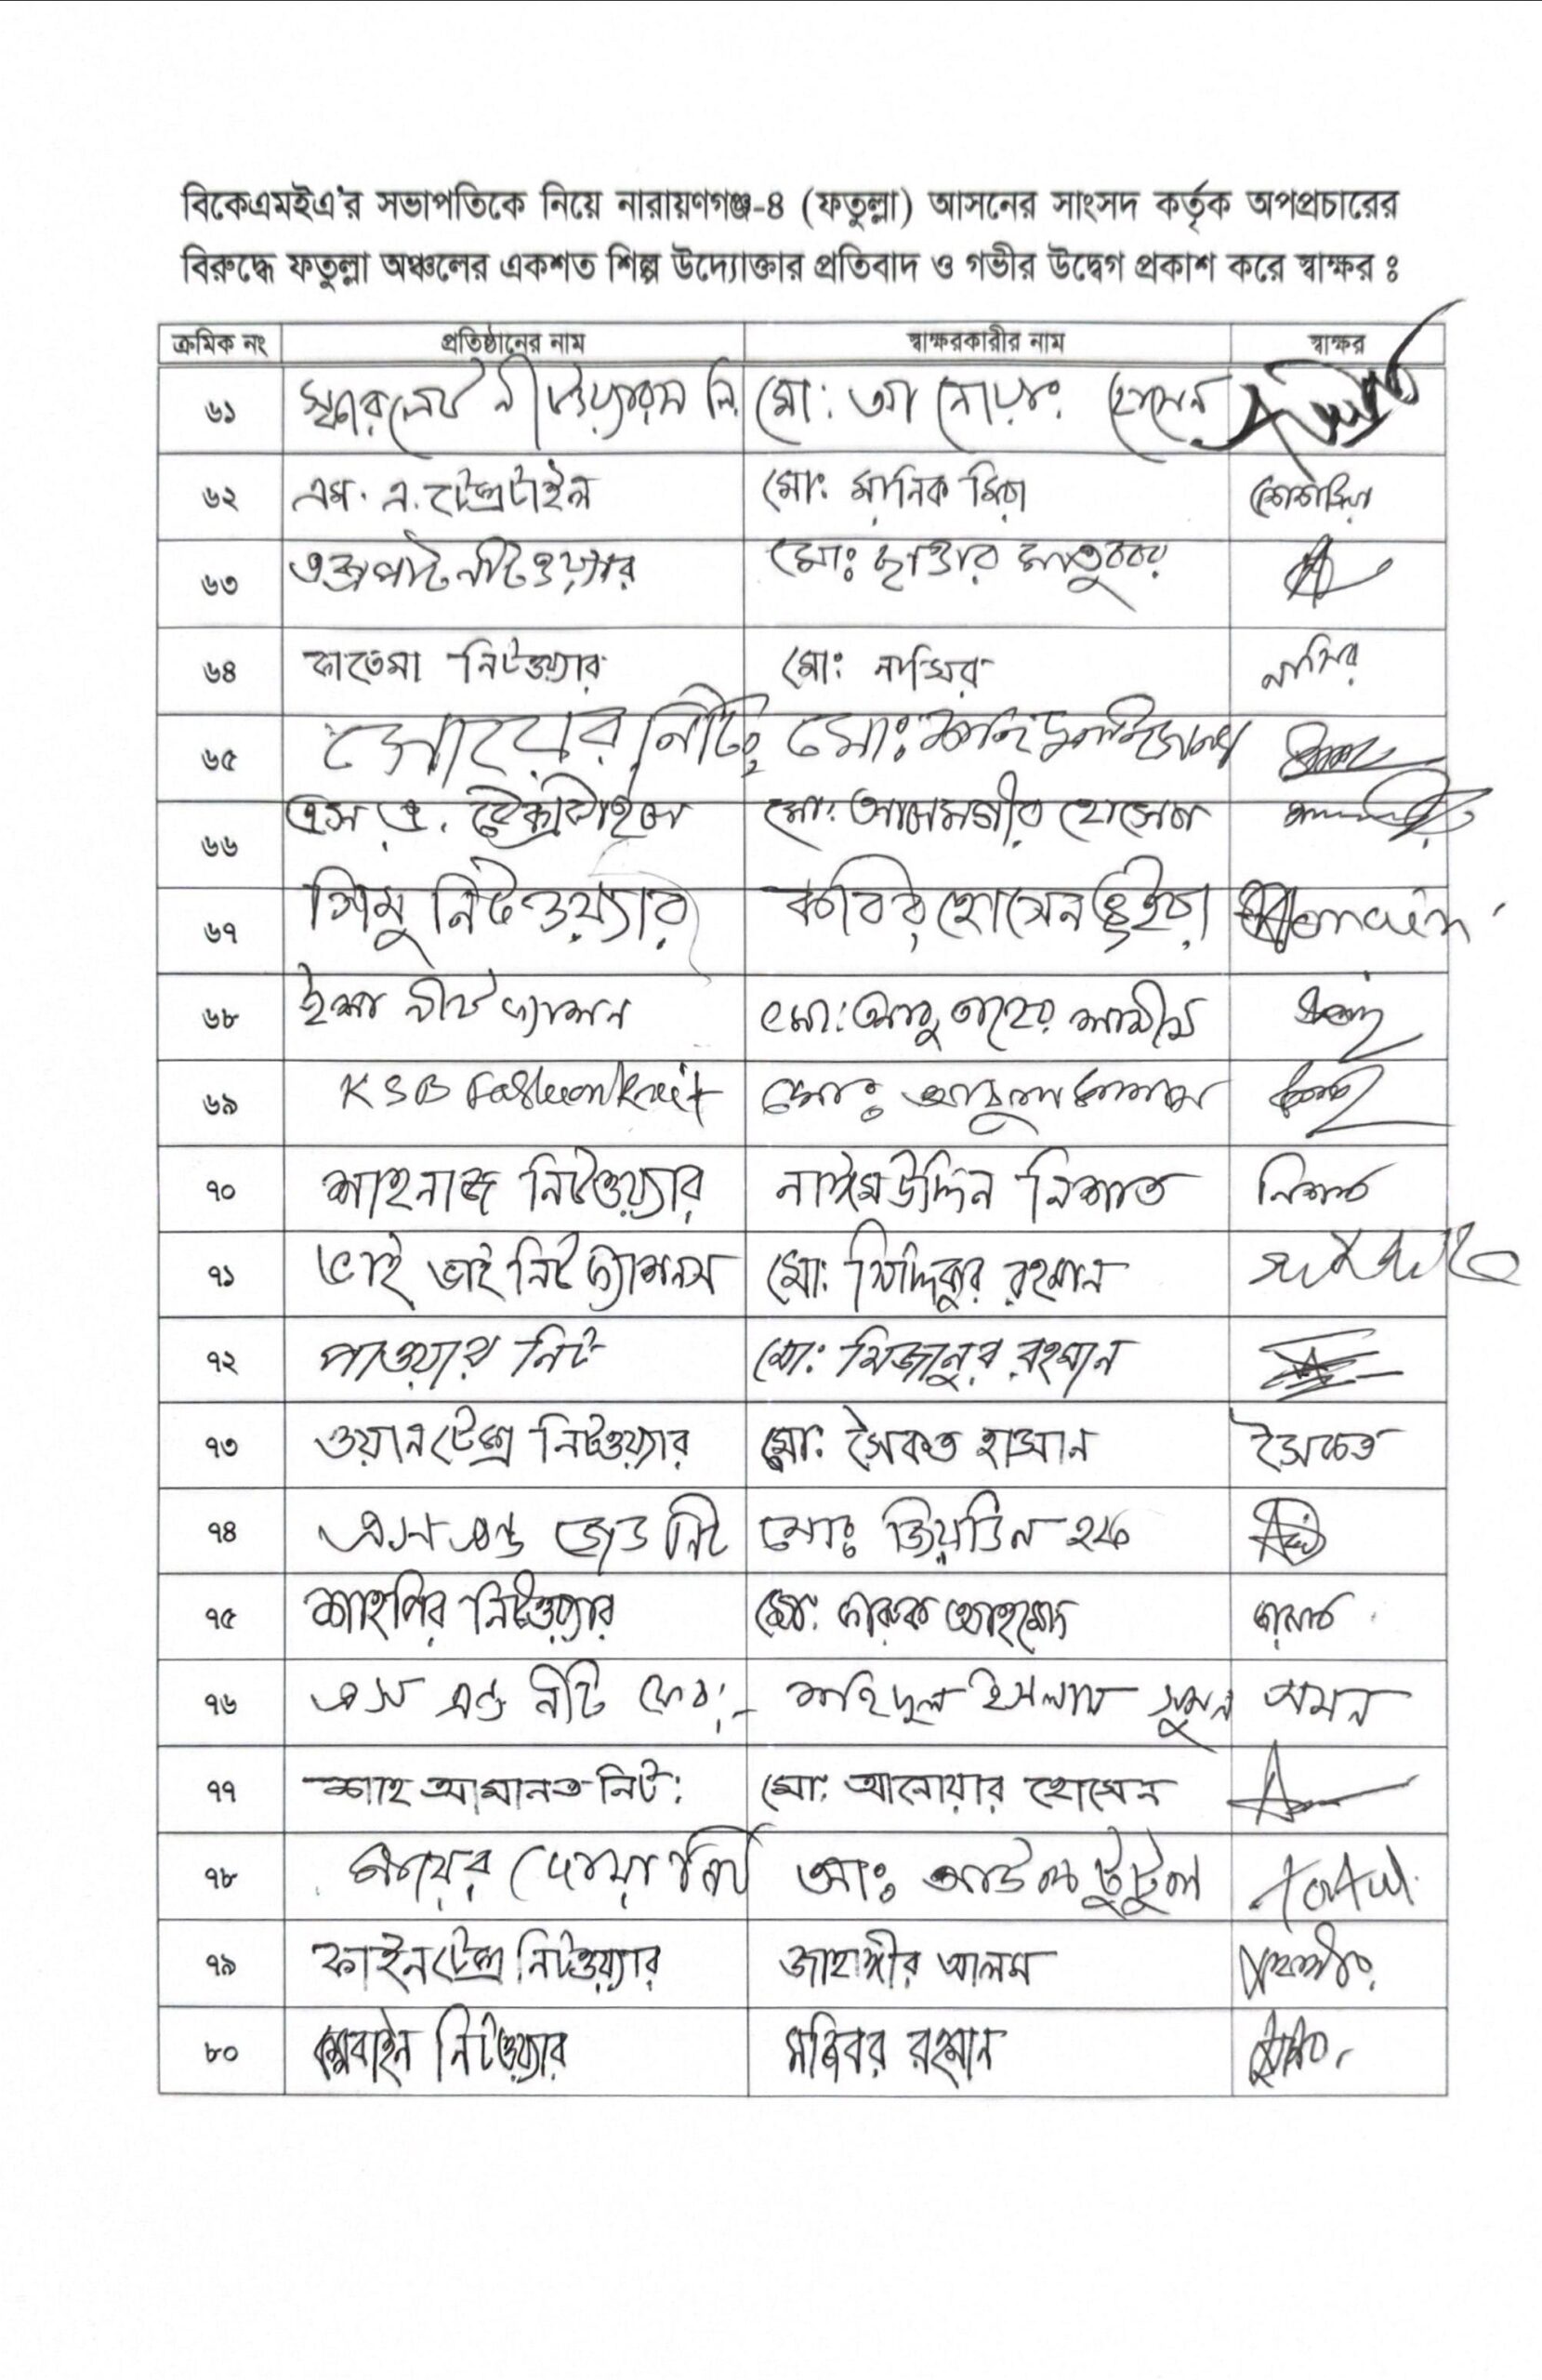 বিকেএমইএ'র সভাপতিকে নিয়ে নারায়ণগঞ্জ-৪ (ফতুল্লা) আসনের সাংসদ কর্তৃক অপপ্রচারের
বিরুদ্ধে ফতুল্লা অঞ্চলের একশত শিল্প উদ্যোক্তার প্রতিবাদ ও গভীর উদ্বেগ প্রকাশ করে স্বাক্ষর ঃ
ক্রমিক নং প্রতিষ্ঠানের নাম স্বাক্ষরকারীর নাম স্বাক্ষর
৬১ স্কারলেট নীটওয়্যারস লি. মো: হোসেন
৬২ এম. এ. টেক্সটাইল মো: মানিক মিয়া
৬৩ নীটওয়্যার মোঃ মাতুব্বর
৬৪ ফাতেমা নিটওয়্যার মো: নাসির নাসির
৬৫ নিটিং মোঃ
৬৬ এস এ. টেক্সটাইল মো: আলমগীর হোসেন
৬৭ শিমু নিটওয়্যার কবির হোসেন ভূইয়া
৬৮ ইশা নীট ফ্যাশন মো: আবু তাহের শামীম
৬৯ KSB Fashion Knit মোঃ আবুল কালাম
৭০ শাহনাজ নিটওয়্যার নাঈমউদ্দিন নিশাত নিশাত
৭১ ভাই ভাই নিট ফ্যাশনস মো: সিদ্দিকুর রহমান
৭২ পাওয়ার নিট মো: মিজানুর রহমান
৭৩ ওয়ানটেক্স নিটওয়্যার মো: সৈকত হাসান সৈকত
৭৪ এস এন্ড জেড নিট মোঃ হক
৭৫ নিটওয়্যার মো: ফারুক আহমেদ
৭৬ এস এন্ড নীট ফেব্রি: শহিদুল ইসলাম সুমন সুমন
৭৭ শাহ আমানত নিট: মো: আনোয়ার হোসেন
৭৮ মায়ের দোয়া নিট আঃ টুটুল
৭৯ ফাইনটেক্স নিটওয়্যার জাহাঙ্গীর আলম
৮০ কম্বাইন নিটওয়্যার মজিবর রহমান